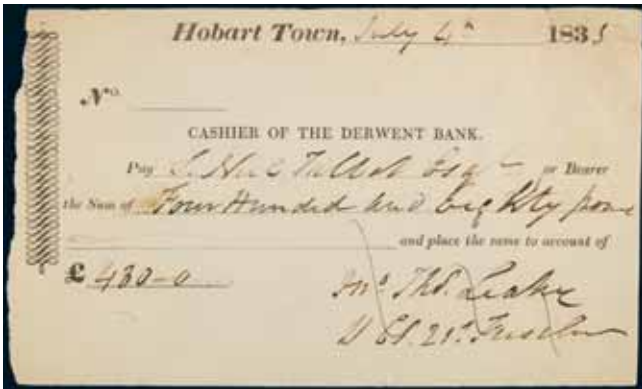 Hobart Town, July 4th 183
No.
CASHIER OF THE DERWENT BANK.
Pay Talbot Esqr or Bearer
the Sum of Four Hundred and Eighty
and place the same to account of
£ 480-0
Jno. Thos. Leake
21st